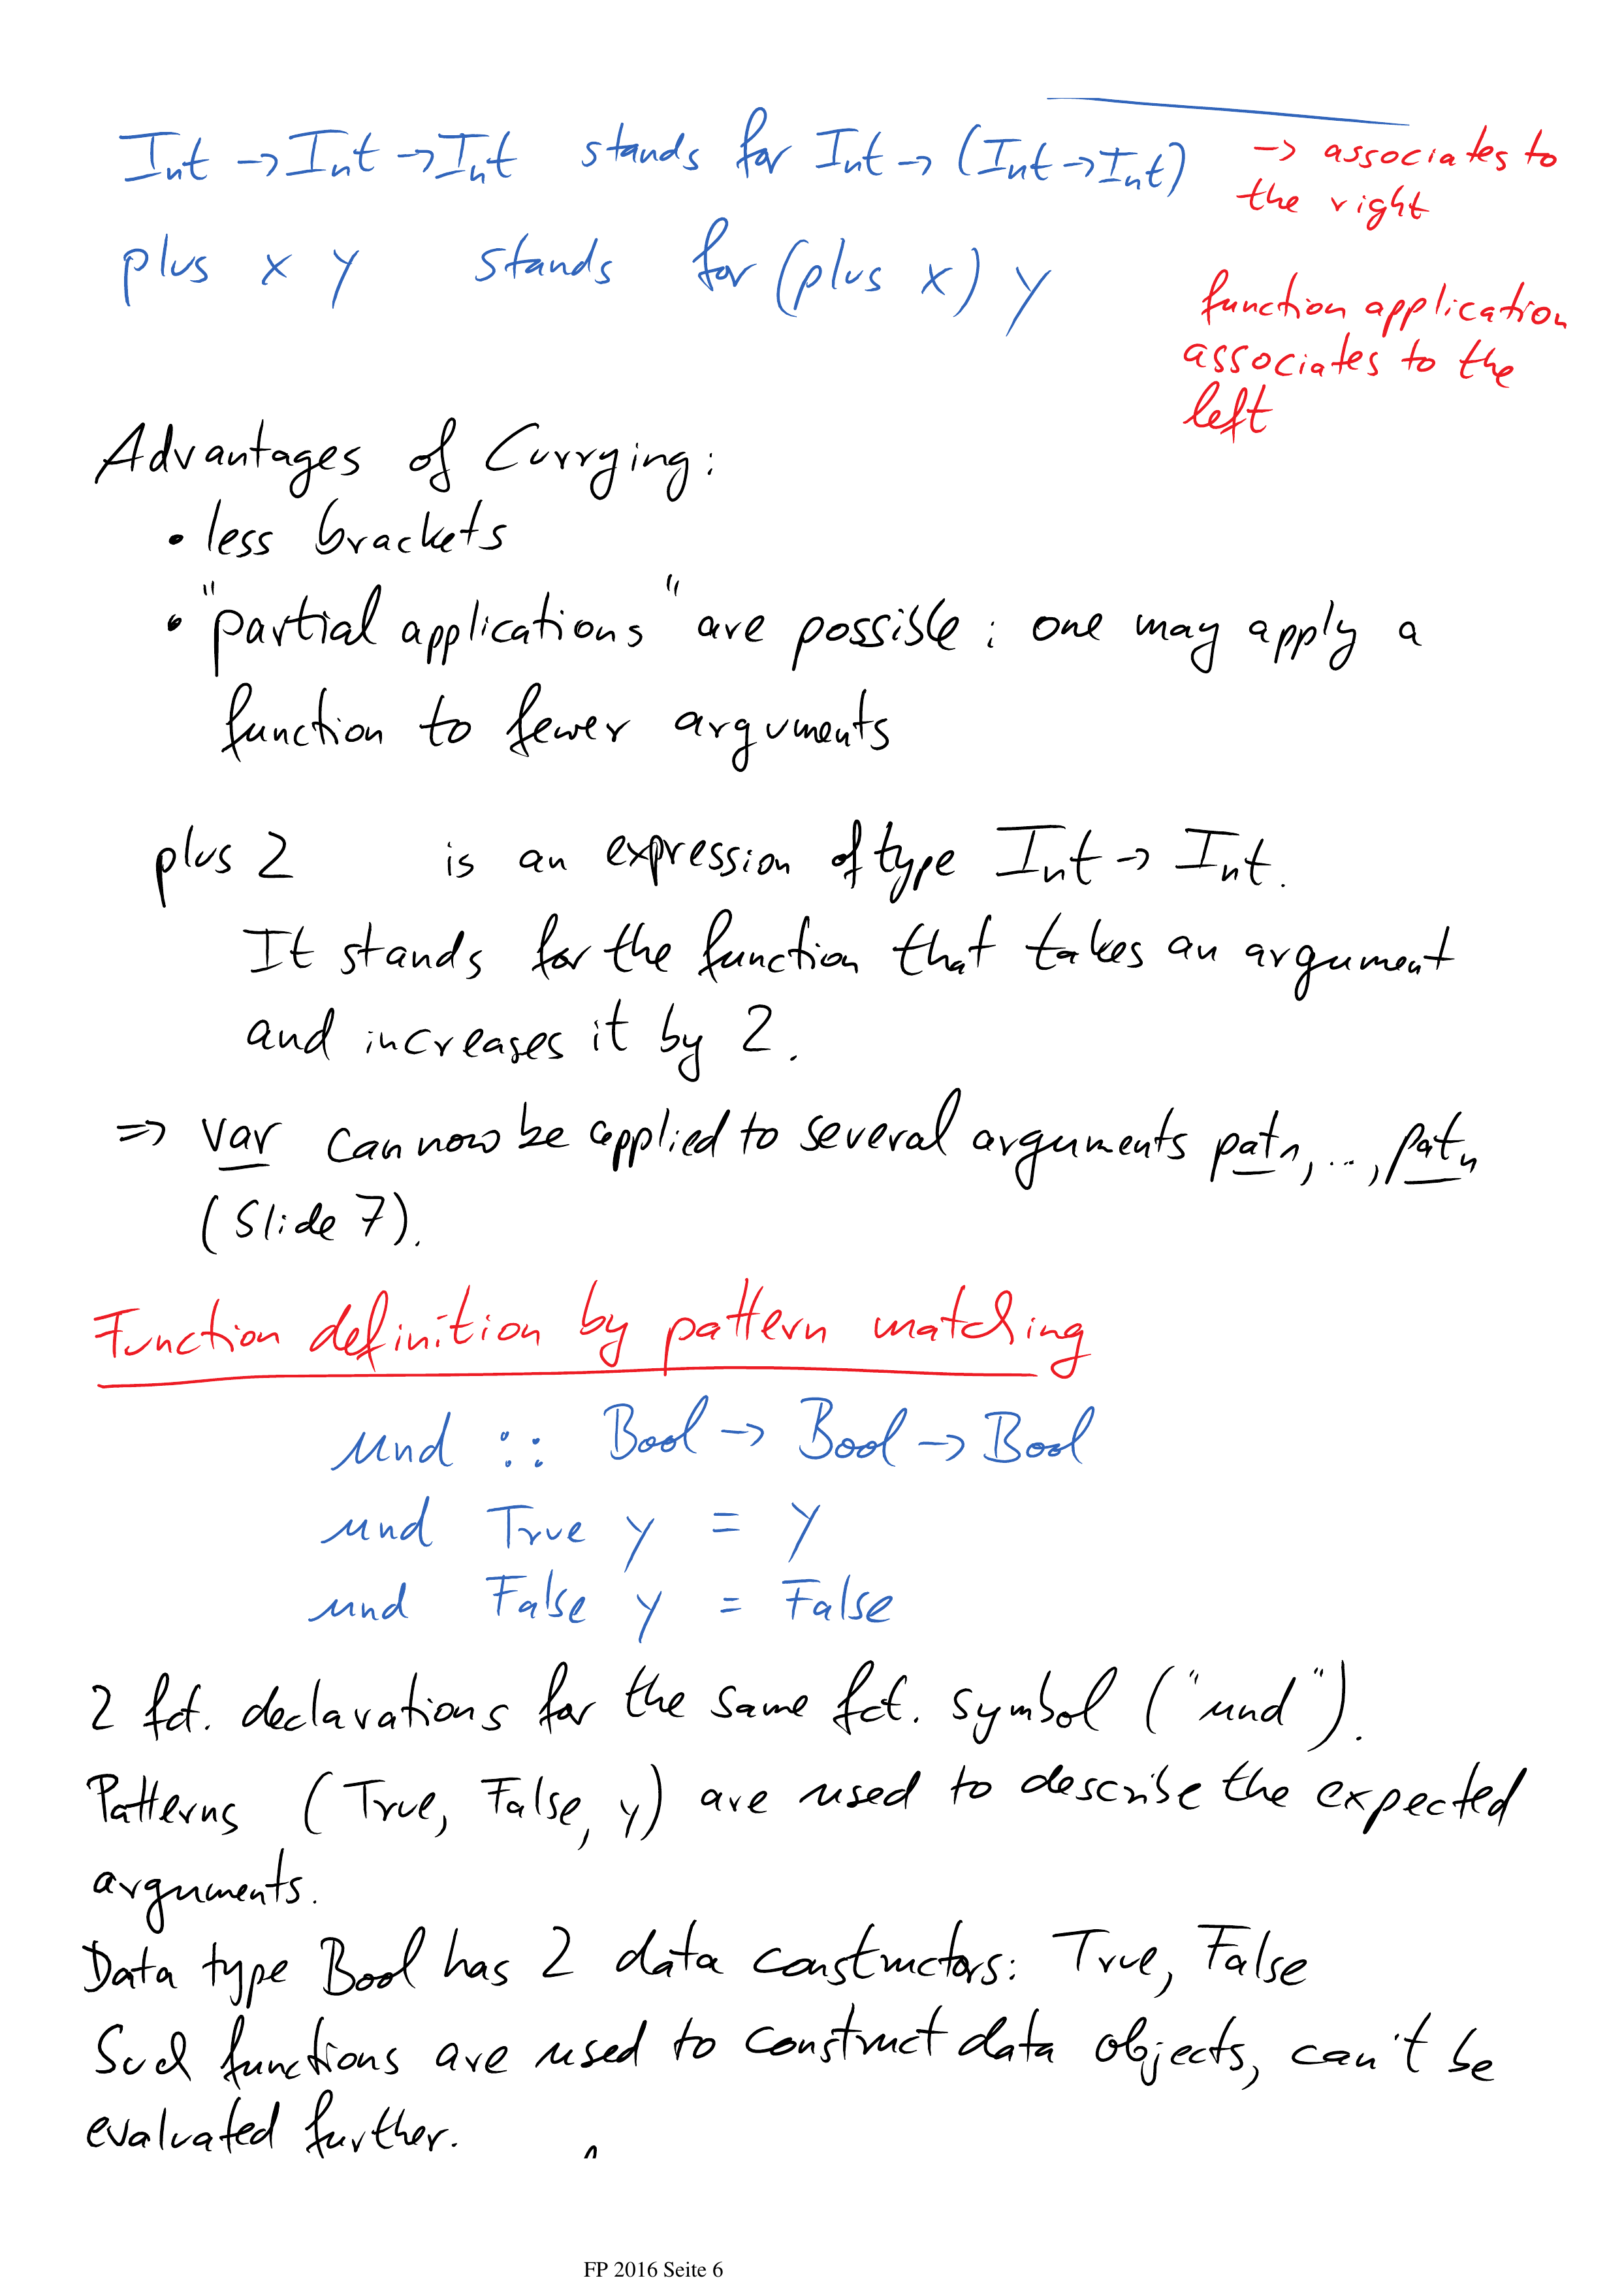 Int -> Int -> Int stands for Int -> (Int -> Int)
-> associates to
the right
plus x y stands for (plus x) y
function application
associates to the
left
Advantages of Currying:
• less brackets
• "partial applications" are possible: one may apply a
function to fewer arguments
plus 2 is an expression of type Int -> Int.
It stands for the function that takes an argument
and increases it by 2.
=> var can now be applied to several arguments pat1, ..., patn
(Slide 7).
Function definition by pattern matching
und :: Bool -> Bool -> Bool
und True y = y
und False y = False
2 fct. declarations for the same fct. symbol ("und").
Patterns (True, False, y) are used to describe the expected
arguments.
Data type Bool has 2 data constructors: True, False
Such functions are used to construct data objects, can't be
evaluated further.
FP 2016 Seite 6